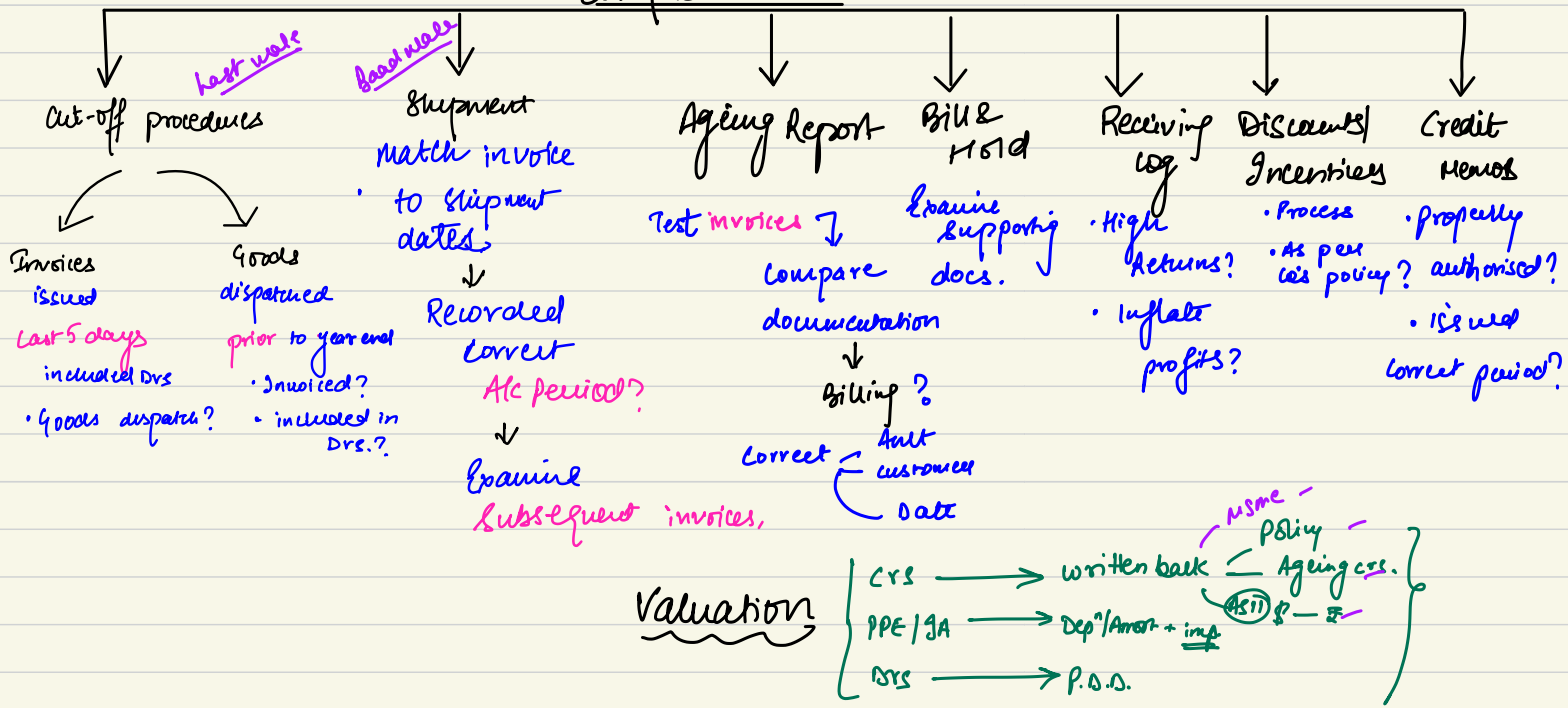 Last wale
Baad wale
Cut-off procedures
Invoices
issued
Last 5 days
included Drs
• Goods dispatch?
Goods
dispatched
prior to year end
• Invoiced?
• included in
Drs.?
Shipment
Match invoice
• to shipment
dates,
Recorded
correct
A/c Period?
Examine
Subsequent invoices,
Ageing Report
Test invoices
compare
documentation
Billing?
Correct
Amt
customer
Date
Bill &
Hold
Examine
supporting
docs.
Receiving
Log
• High
Returns?
• Inflate
profits?
Discounts/
Incentives
• Process
• As per
co's policy?
Credit
Memos
• Properly
authorised?
• issued
correct period?
Valuation
Crs
written back
MSME
Policy
Ageing crs.
AS11 $ — ₹
PPE / IA
Depⁿ/Amort + imp
Drs
P.D.D.